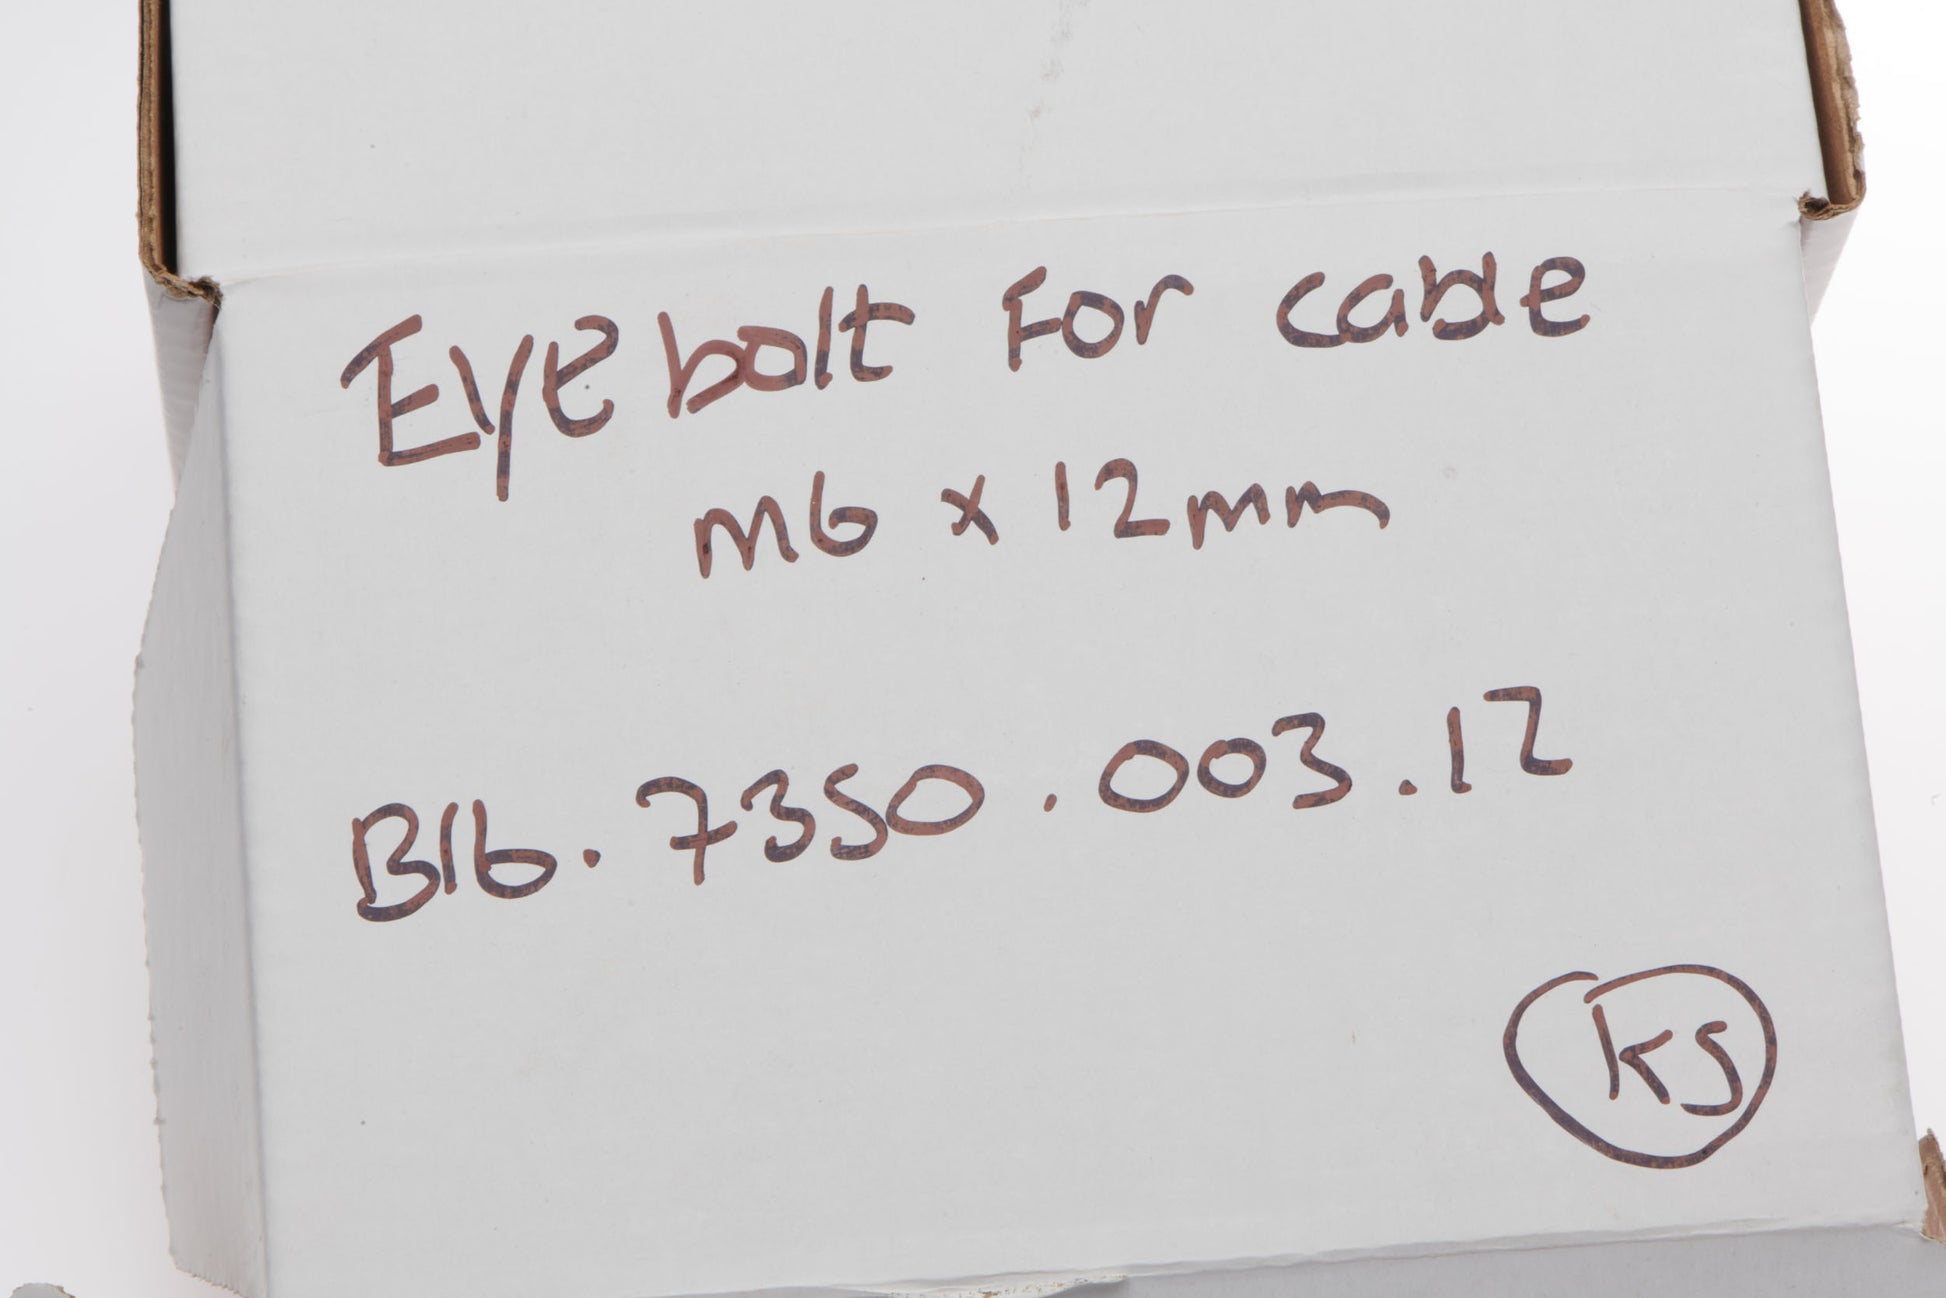 Eye bolt For cable
M6 x 12mm
B16.7350.003.12
KS